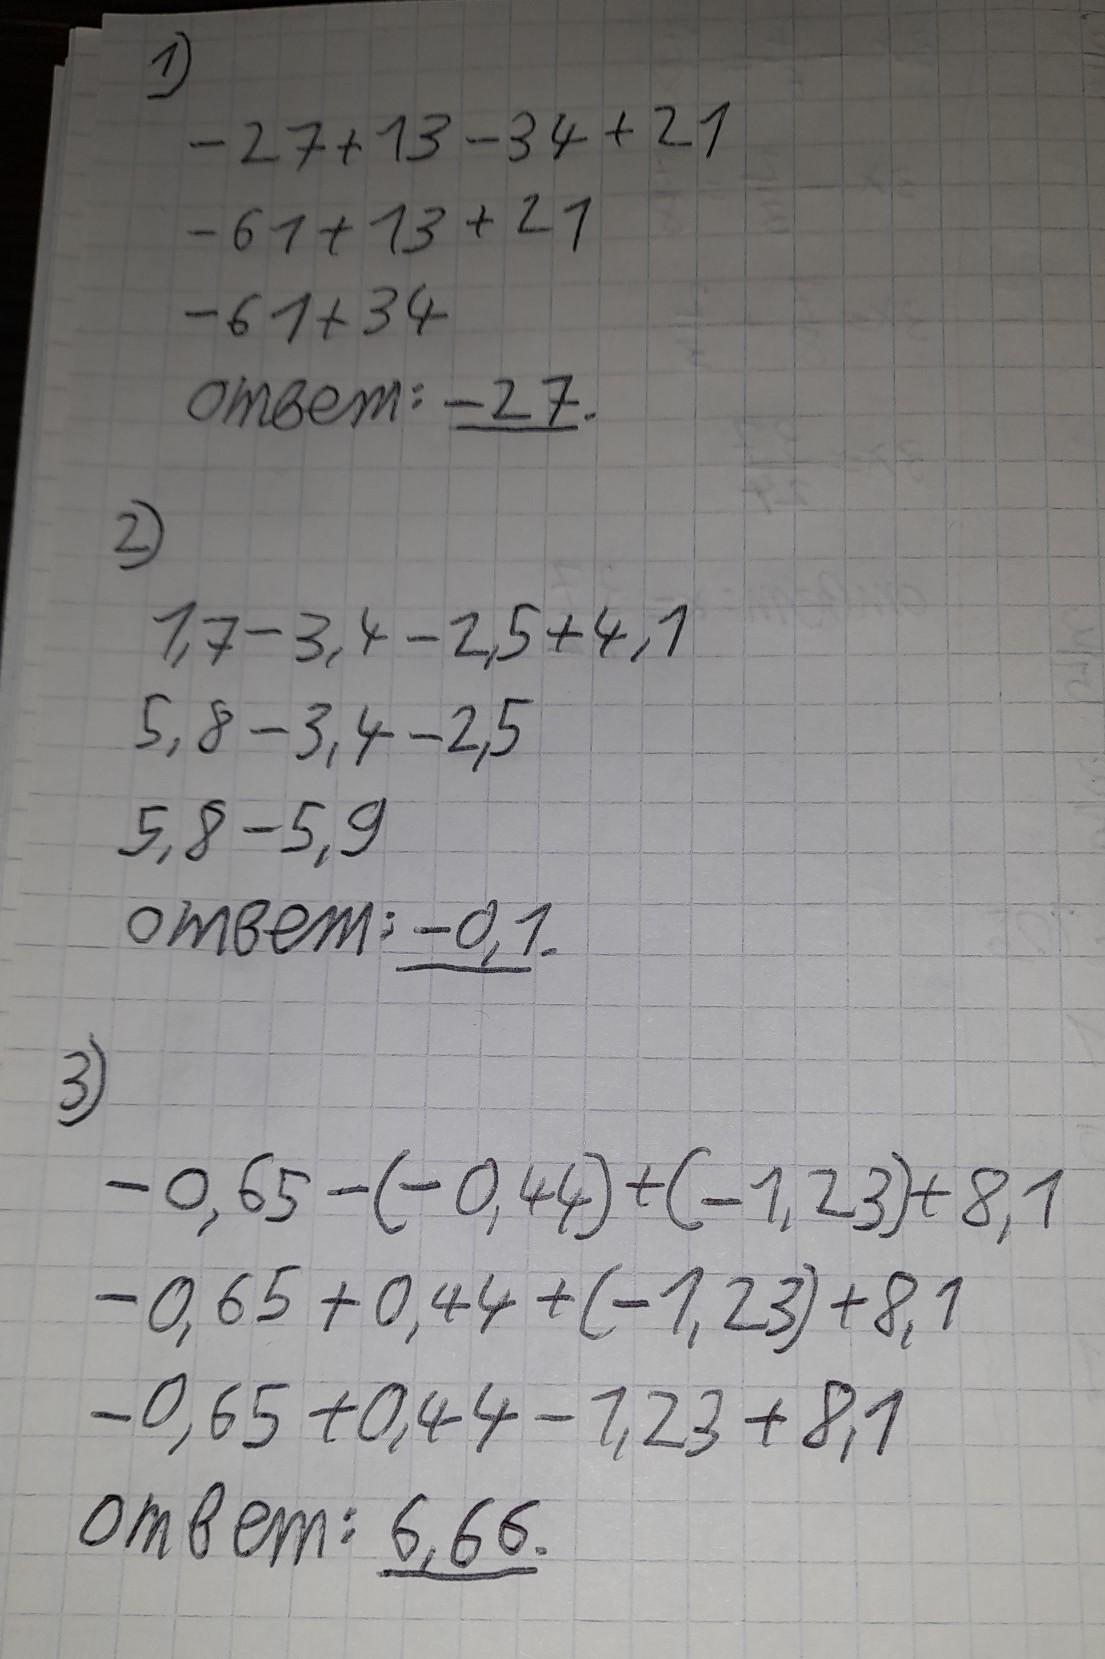 1)
-27+13-34+21
-61+13+21
-61+34
ответ: -27.
2)
1,7-3,4-2,5+4,1
5,8-3,4-2,5
5,8-5,9
ответ: -0,1.
3)
-0,65-(-0,44)+(-1,23)+8,1
-0,65+0,44+(-1,23)+8,1
-0,65+0,44-1,23+8,1
ответ: 6,66.